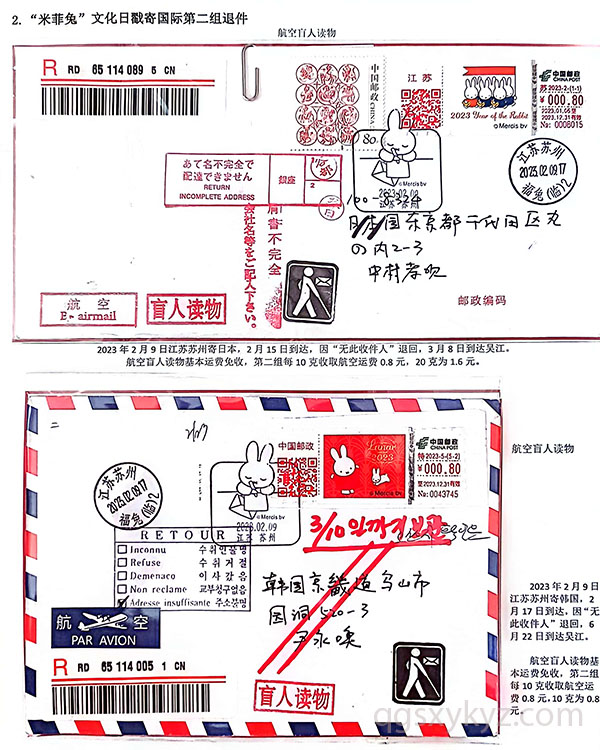 2. “米菲兔”文化日戳寄国际第二组退件
航空盲人读物
R RD 65 114 089 5 CN
中国邮政 CHINA
80
江苏
2023 Year of the Rabbit
© Mercis bv
中国邮政
CHINA POST
苏2023-2(1-1)
¥000.80
2023.12.31有效
№: 0006015
あて名不完全で
配達できません
RETURN
INCOMPLETE ADDRESS
銀座
2
© Mercis bv
2023.02.09
江苏 苏州
江苏苏州
2023.02.09.17
福兔(临)2
肩書不完全
会社名等をご記入下さい。
国东京都千代田区丸
の内2-3
中村
邮政编码
航空
By airmail
盲人读物
2023年2月9日江苏苏州寄日本，2月15日到达，因“无此收件人”退回，3月8日到达吴江。
航空盲人读物基本运费免收，第二组每10克收取航空运费0.8元，20克为1.6元。
二
江苏苏州
2023.02.09.17
福兔(临)2
© Mercis bv
2023.02.09
江苏 苏州
中国邮政
Lunar
2023
© Mercis bv
中国邮政
CHINA POST
特2023-5(5-2)
¥000.80
2023.12.31有效
№: 0043745
航空盲人读物
RETOUR
Inconnu 수취인불명
Refuse 수취거절
Demenaco 이사갔음
Non reclame 교부청구없음
Adresse insuffisante 주소불명
3/10
韩国京畿道乌山市
洞520-3
航空
PAR AVION
R RD 65 114 005 1 CN
盲人读物
2023年2月9日
江苏苏州寄韩国，2
月17日到达，因“无
此收件人”退回，6
月22日到达吴江。
航空盲人读物基
本运费免收，第二组
每10克收取航空运
费0.8元，10克为0.8
元。
qgsxykyz.com